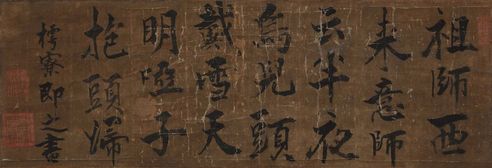 祖師西
来意師
云半夜
烏児頭
戴雪天
明啞子
抱頭歸
樗寮即之書